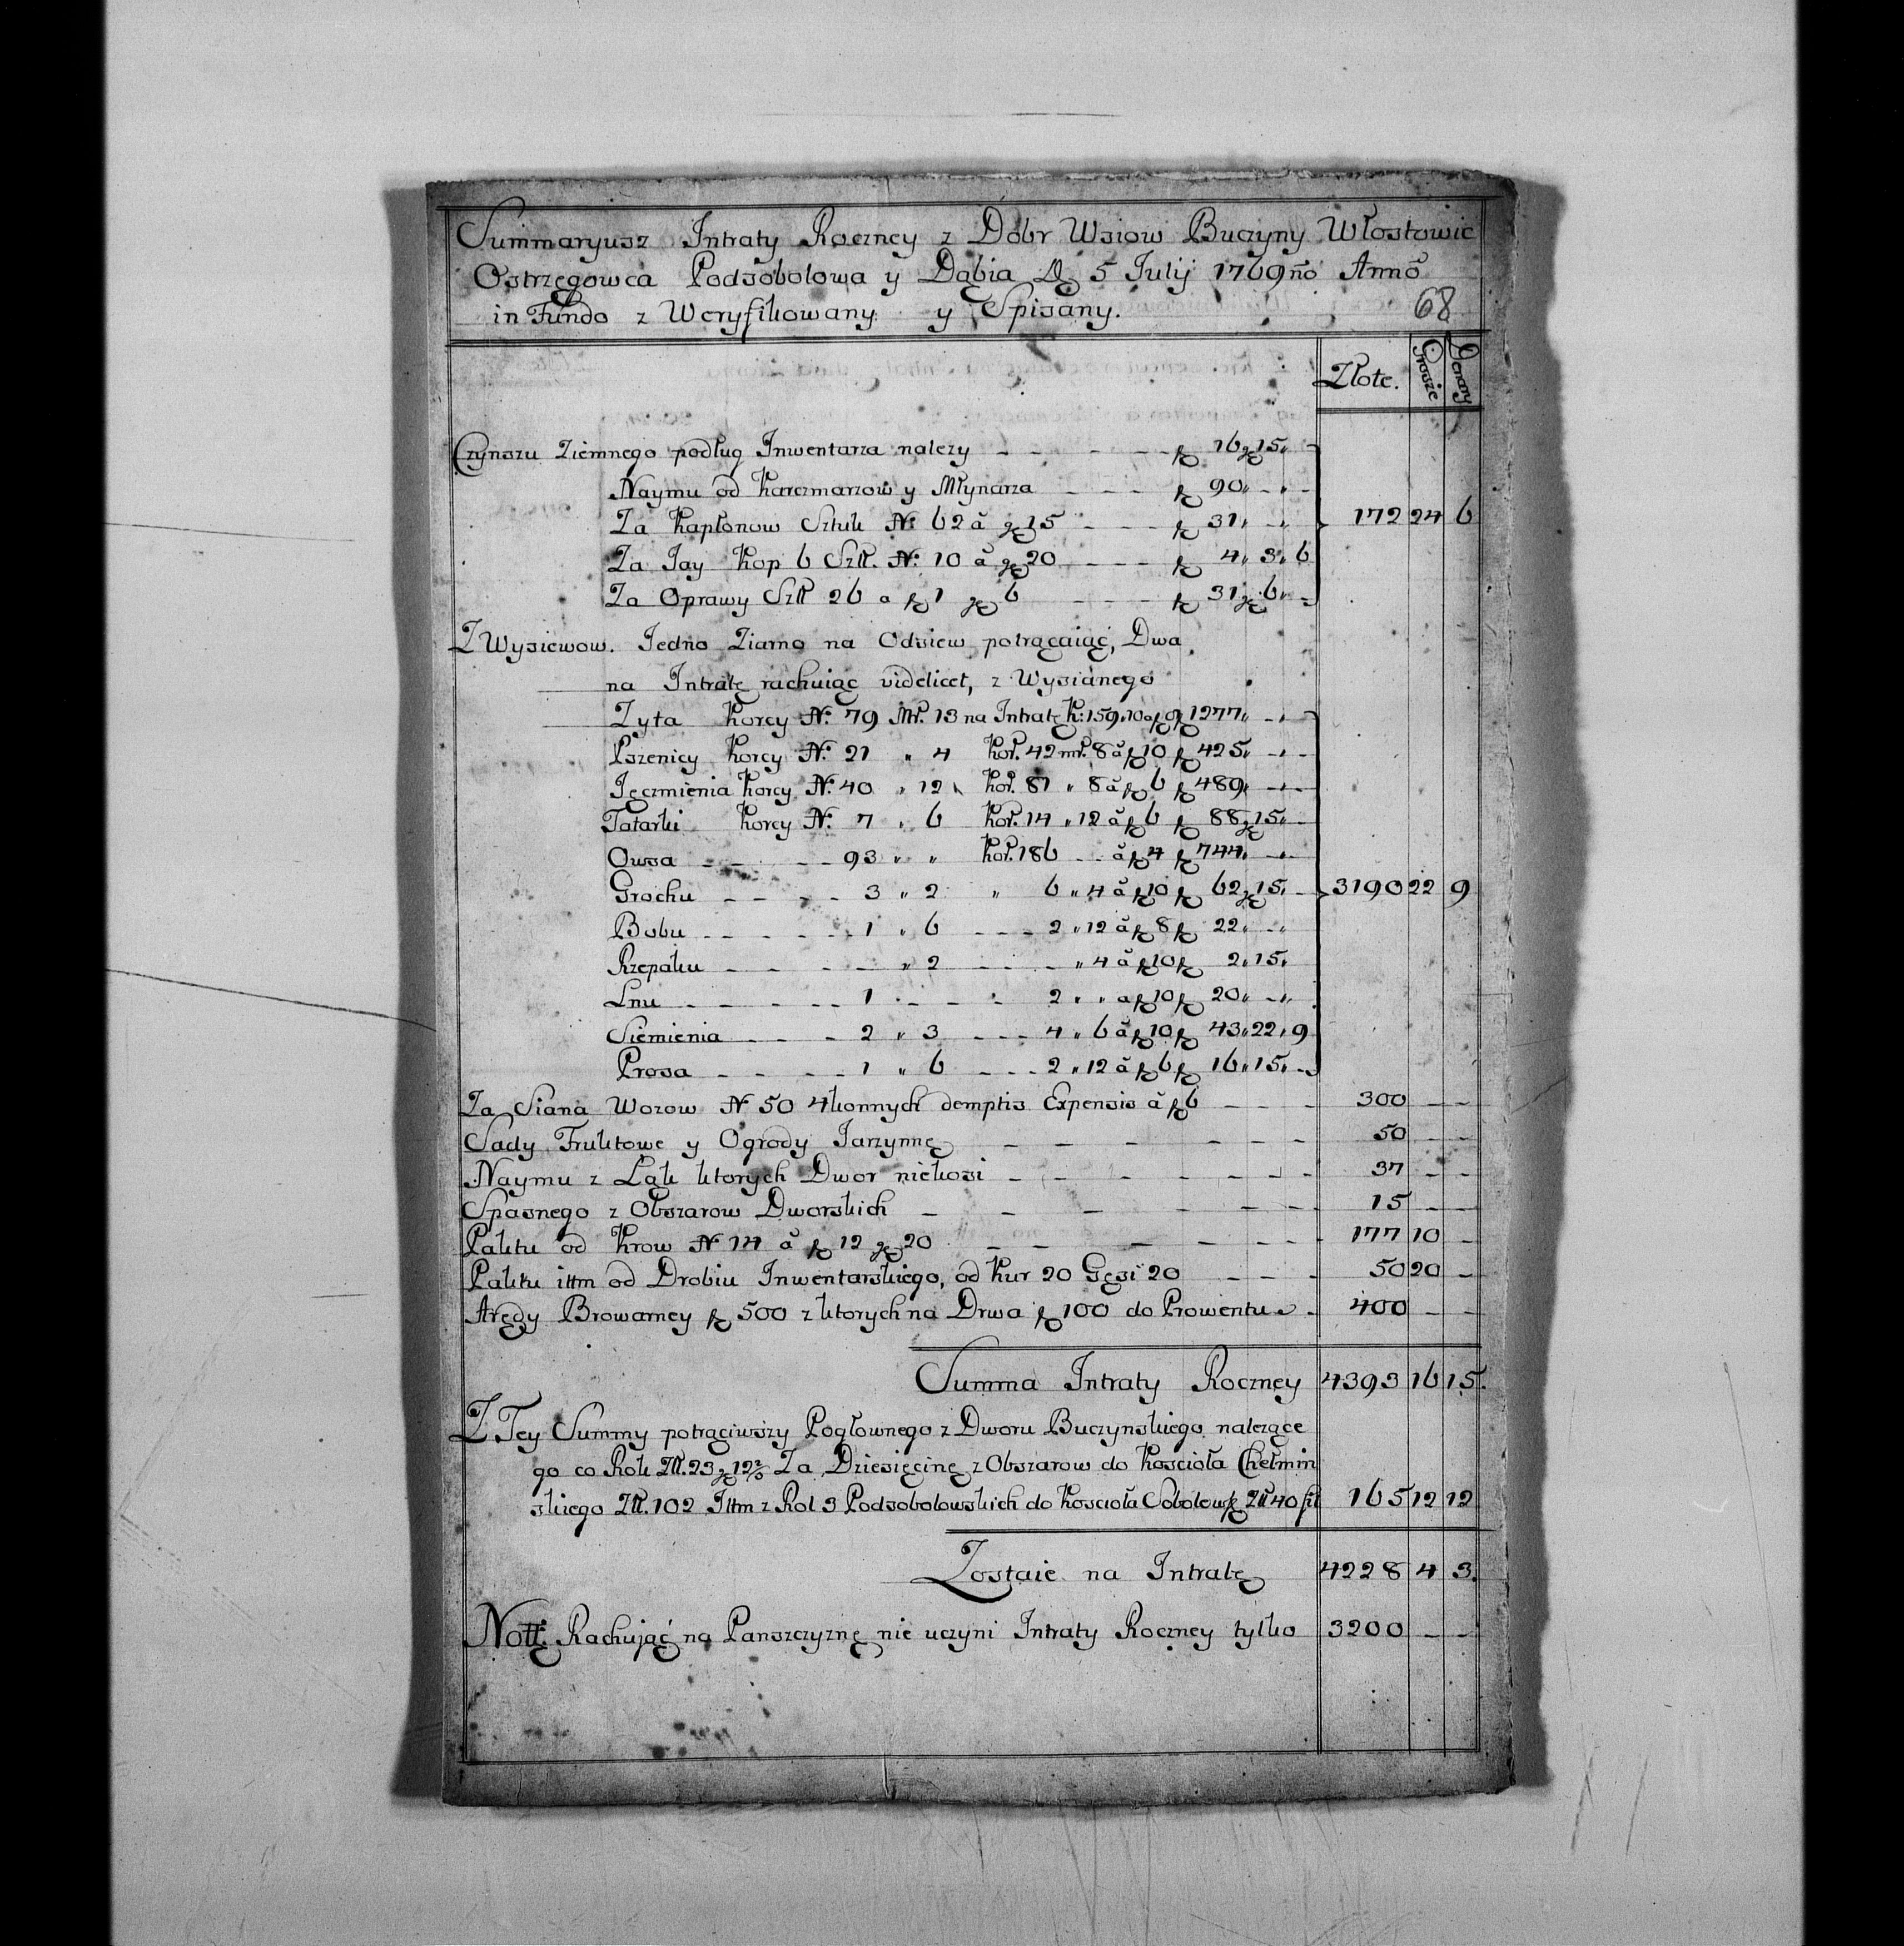 Summaryusz Intraty Roczney z Dobr Wsiow Buczyny Włostowic
Ostrzęgowca Podsobolowa y Dąbia D. 5 Julij 1769no Anno
in Fundo z Weryfikowany y Spisany.
68
Złote. Grosze Denary
Czynszu Ziemnego podług Inwentarza nalezy - - - - - f 16 g 15 „
Naymu od Karczmarzow y Młynarza - - - f 90 „ - „ -
Za Kapłonow Sztuk No. 62 à g 15 - - - f 31 „ - „ 172 24 6
Za Jay Kop 6 Szt. No. 10 à g 20 - - - f 4 „ 3 „ 6
Za Oprawy Szt 26 a f 1 g 6 - - - f 31 g 6 „ -
Z Wysiewow. Jedno Ziarno na Odsiew potrącaiąć, Dwa
na Intratę rachuiąc videlicet, z Wysianego
Zyta Korcy No. 79 Mr. 13 na Intratę K: 159 „ 10 a f 8 f 1277 „ - „ -
Pszenicy Korcy No. 21 „ 4 Kor. 42 mr. 8 à f 10 f 425 „ - „ -
Jęczmienia Korcy No. 40 „ 12 „ Kor. 81 „ 8 à f 6 f 489 „ - „ -
Tatarki Korcy No. 7 „ 6 Kor. 14 „ 12 à f 6 f 88 g 15 „ -
Owsa - - - - 93 „ „ Kor. 186 - - à f 4 f 744 „ - „ -
Grochu - - - - 3 „ 2 „ 6 „ 4 à f 10 f 62 g 15 „ - 3190 22 9
Bobu - - - - - 1 „ 6 - - - 2 „ 12 à f 8 f 22 „ - „
Rzepaku - - - - - „ 2 - - - - „ 4 à f 10 f 2 „ 15 „
Lnu - - - - - 1 - - - - 2 „ „ a f 10 f 20 „ - „
Siemienia - - - 2 „ 3 - - - 4 „ 6 à f 10 f 43 „ 22 „ 9
Prosa - - - - 1 „ 6 - - - 2 „ 12 à f 6 f 16 „ 15 „ -
Za Siana Wozow N 50 4konnych demptis Expensis à f 6 - - - 300 - -
Sady Fruktowe y Ogrody Jarzynnę - - - - - - 50 - -
Naymu z Łąk ktorych Dwor niekosi - - - - - - - 37 - -
Spasnego z Obszarow Dworskich - - - - - - 15 - -
Paktu od Krow N 14 à f 12 g 20 - - - - - - 177 10 -
Paktu ittm od Drobiu Inwentarskiego, od Kur 20 Gęsi 20 - - - 50 20 -
Arędy Browarney f 500 z ktorych na Drwa f 100 do Prowentu - 400 - -
Summa Intraty Roczney 4393 16 15.
Z Tey Summy potrąciwszy Pogłownego z Dworu Buczynskiego nalezące
go co Rok Złł. 23 g 12 2/3 Za Dziesięcinę z Obszarow do Kościoła Chełmin
skiego Złł. 102 Ittm z Rol 3 Podsobolowskich do Koscioła Sobolowsk Złł 40 165 12 12
Zostaie na Intratę 4228 4 3.
Nott. Rachująć na Panszczyznę nie uczyni Intraty Roczney tylko 3200 - -